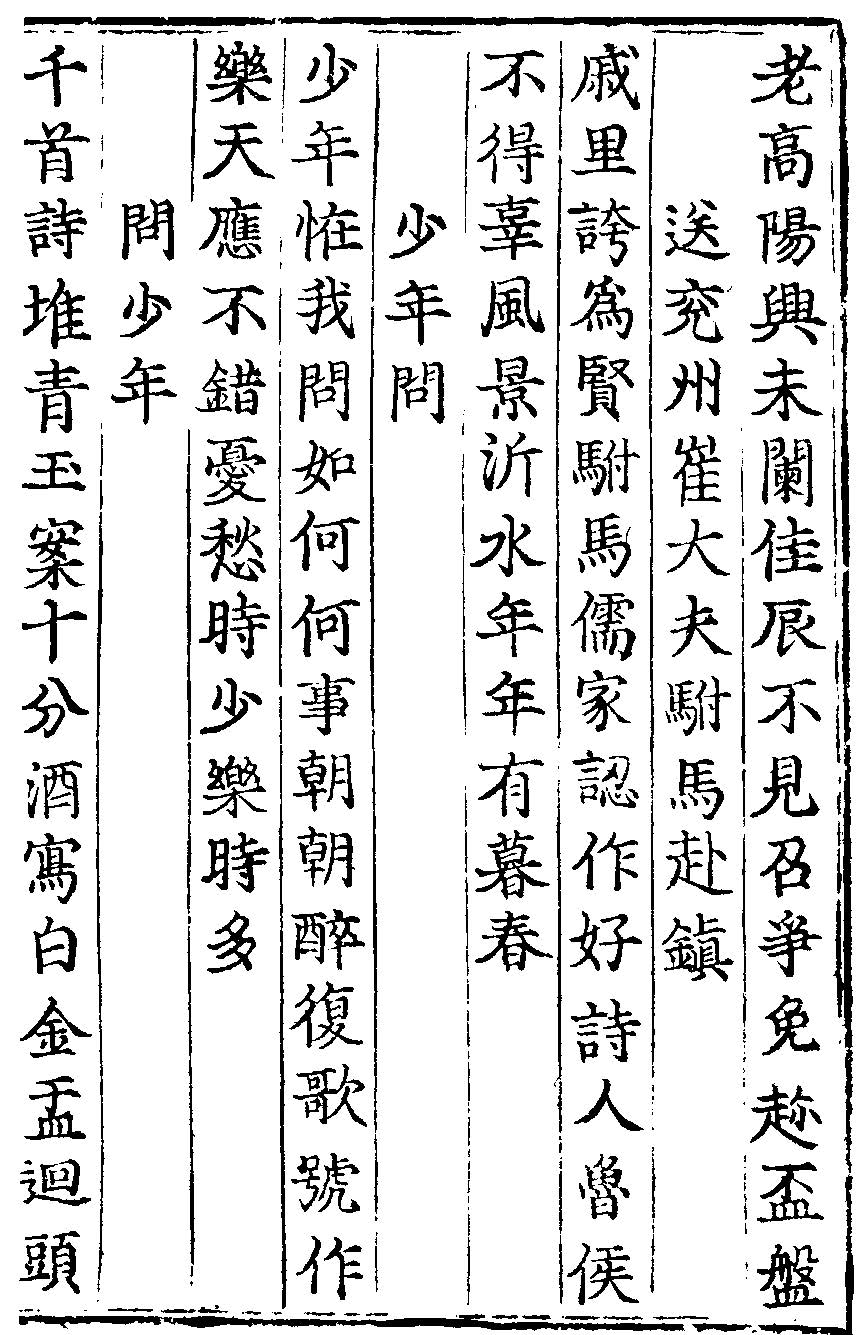 老高陽興未闌佳辰不見召爭免趂盃盤
送兖州崔大夫駙馬赴鎮
戚里誇爲賢駙馬儒家認作好詩人魯侯
不得辜風景沂水年年有暮春
少年問
少年恠我問如何何事朝朝醉復歌號作
樂天應不錯憂愁時少樂時多
問少年
千首詩堆青玉案十分酒寫白金盂迴頭